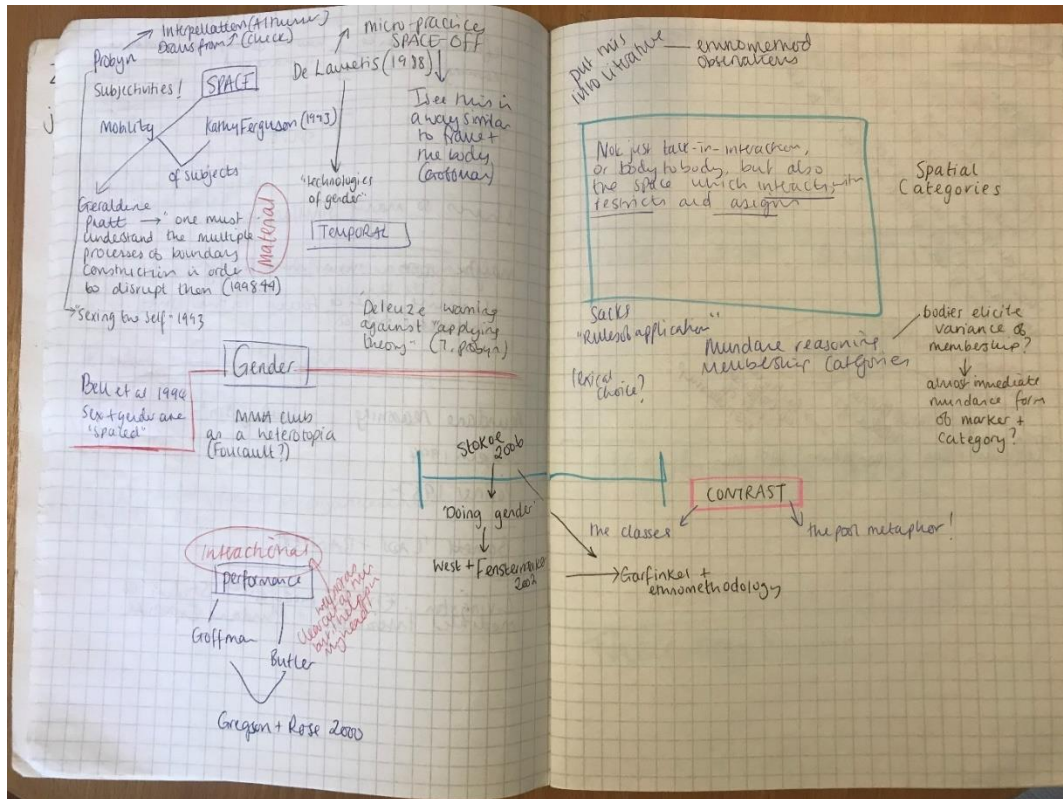 Probyn
Interpellation (Althusser)
Draws from (check)
Subjectivities!
SPACE
Mobility
Kathy Ferguson (1993)
of subjects
Geraldine
Pratt → "one must
understand the multiple
processes of boundary
construction in order
to disrupt them (1998:44)
Material
"Sexing the self" - 1993
micro-practice
SPACE-OFF
De Lauretis (1988)
I see this in
a way similar
to frame +
the body
(Goffman)
"technologies
of gender"
TEMPORAL
"Deleuze warning
against "applying
theory" - (7, probyn)
Gender
Bell et al 1994
Sex + gender are
"spaced"
MMA club
as a heterotopia
(Foucault?)
Stokoe
2006
'Doing gender'
West + Fenstermaker
2002
Garfinkel +
ethnomethodology
Interactional
performance
Goffman
Butler
Gregson + Rose 2000
put this
into literature
ethnomethod
observations
Not just talk-in-interaction,
or body to body, but also
the space which interacts with
restricts and assigns
Spatial
Categories
Sacks
"Rules of application"
lexical
choice?
Mundane reasoning
Membership categories
bodies elicite
variance of
membership?
almost immediate
mundane form
of marker +
category?
CONTRAST
the classes
the pool metaphor!